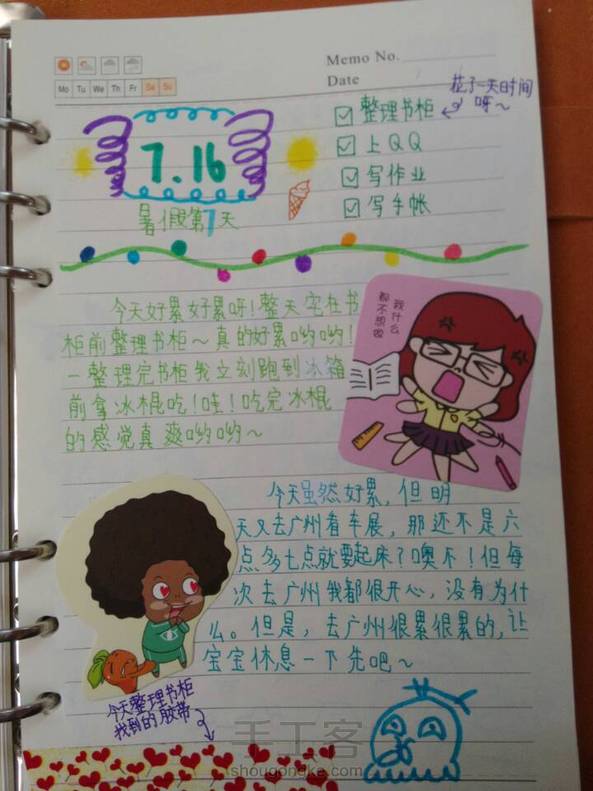 Memo No.
Date
Mo Tu We Th Fr Sa Su
花了一天时间
呀～
整理书柜
上QQ
写作业
写手帐
7.16
暑假第1天
今天好累好累呀！整天宅在书
柜前整理书柜～真的好累哟哟！
一整理完书柜我立刻跑到冰箱
前拿冰棍吃！哇！吃完冰棍
的感觉真爽哟哟～
我什么
都不想做
今天虽然好累，但明
天又去广州看车展，那还不是六
点多七点就要起床？噢不！但每
次去广州我都很开心，没有为什
么。但是，去广州很累很累的，让
宝宝休息一下先吧～
今天整理书柜
找到的胶带
手工客
shougongke.com